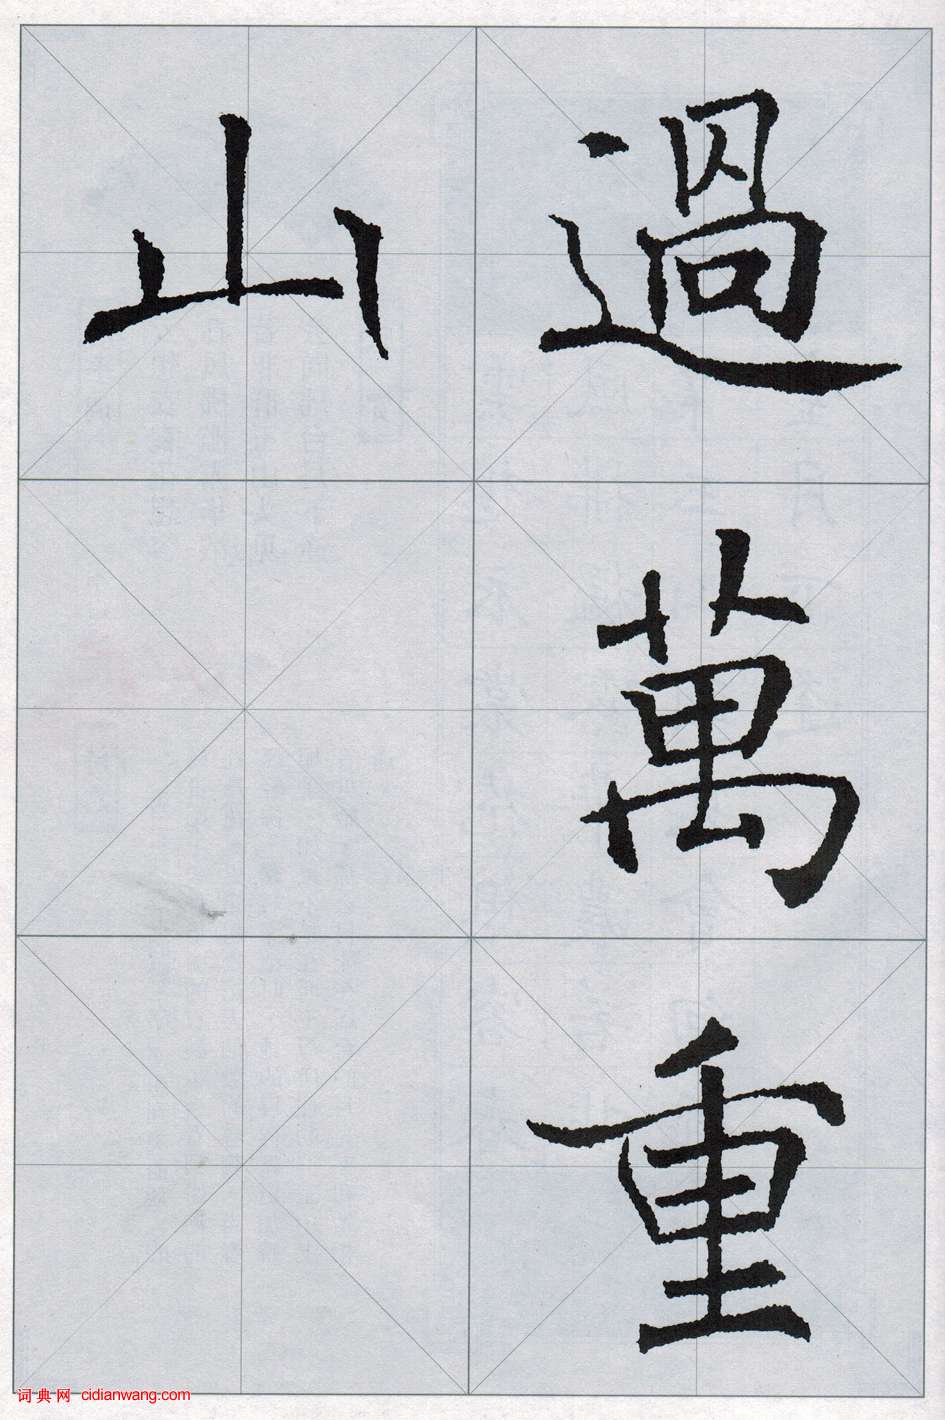 過萬重
山
词典网 cidianwang.com